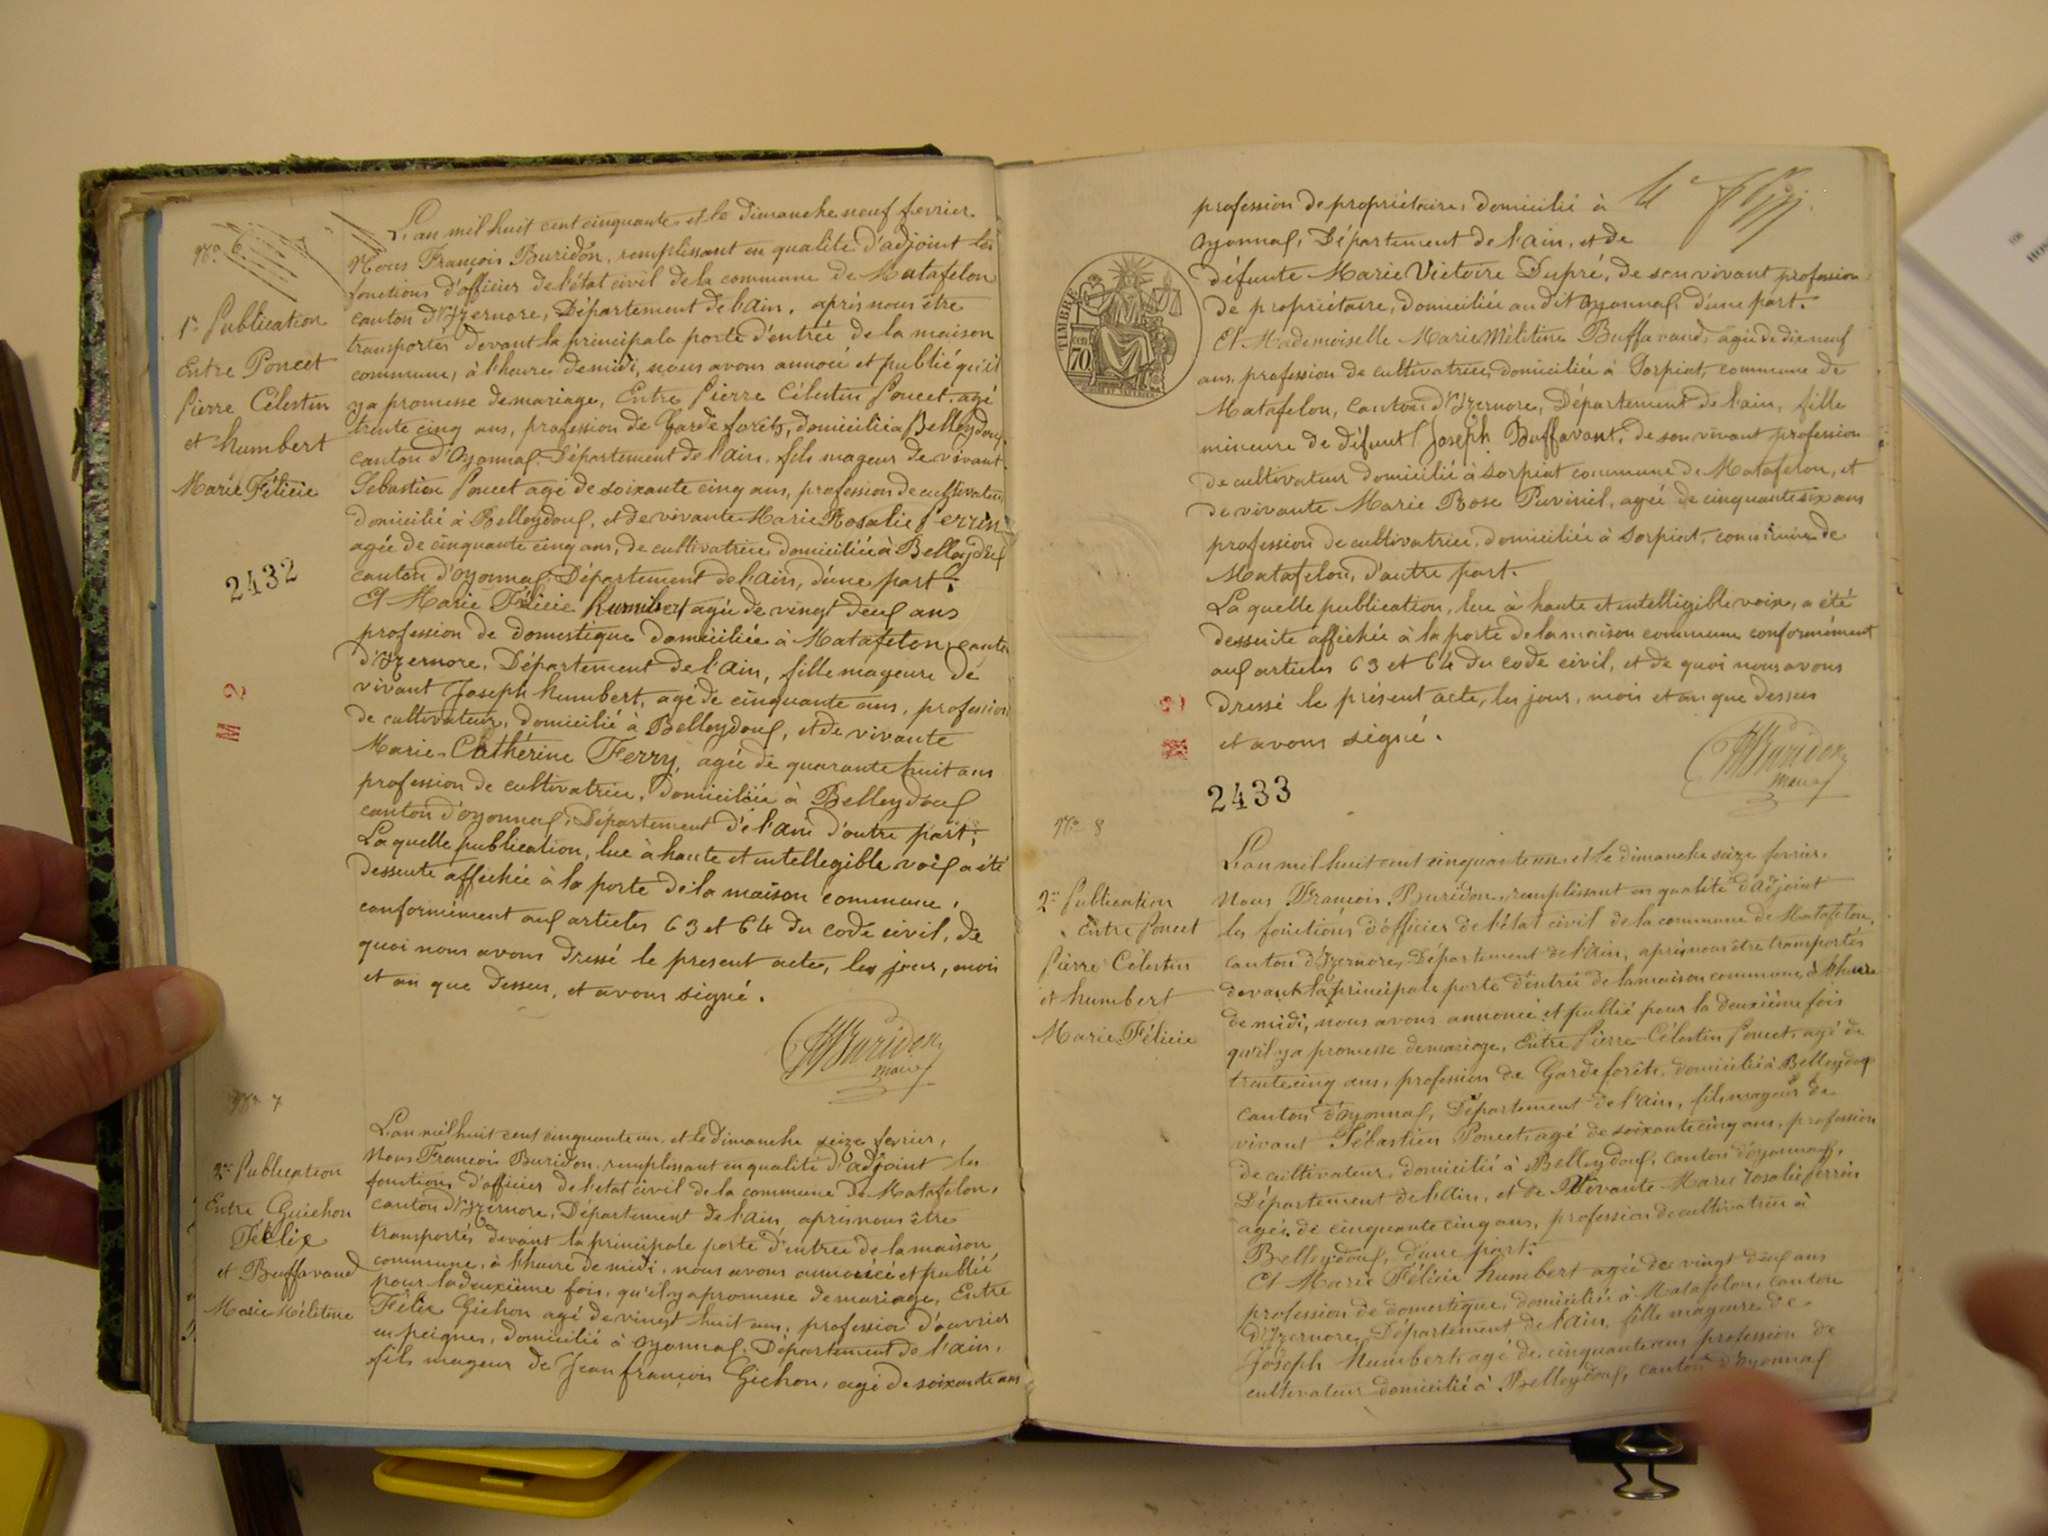 N° 6
1re Publication
Entre Poncet
Pierre Célestin
et humbert
Marie Félicie
2432
2
L'an mil huit cent cinquante et le dimanche neuf fevrier
Nous François Buridon, remplissant en qualité d'adjoint les
fonctions d'officier de l'état civil de la commune de Matafelon
canton d'Izernore, Département de l'ain, après nous être
transportés devant la principale porte d'entrée de la maison
commune, à l'heure de midi, nous avons annocé et publié qu'il
y a promesse de mariage, Entre Pierre Célestin Poncet, agé
trente cinq ans, profession de Garde forêts, domicilié à Belleydoux,
canton d'Oyonnax, Département de l'ain, fils mageur de vivant
Sebastien Poncet agé de soixante cinq ans, profession de cultivateur
domicilié à Belleydoux, et de vivante Marie Rosalie Perrin
agée de cinquante cinq ans, de cultivatrice domiciliée à Belleydoux
canton d'oyonnax, Département de l'Ain, d'une part.
Et Marie Félicie humbert agée de vingt deux ans
profession de domestique domiciliée à Matafelon, canton
d'Izernore, Département de l'Ain, fille mageure de
vivant Joseph humbert, agé de cinquante ans, profession
de cultivateur, domicilié à Belleydoux, et de vivante
Marie Cathérine Ferry, agée de quarante huit ans
profession de cultivatrice, domiciliée à Belleydoux
canton d'oyonnax, Département de l'ain d'autre part.
La quelle publication, lue à haute et intellegible voix a été
dessuite affichée à la porte de la maison commune,
conformément aux articles 63 et 64 du code civil, de
quoi nous avons dressé le present acte, les jour, mois
et an que dessus, et avons signé.
Buridon
N° 7
2me Publication
Entre Guichon
Félix
et Buffavand
Marie Mélitine
L'an mil huit cent cinquante un et le dimanche seize fevrier,
Nous François Buridon, remplissant en qualité d'adjoint les
fonctions d'officier de l'etat civil de la commune de Matafelon,
canton d'Izernore, Département de l'Ain, après nous être
transportés devant la principale porte d'entrée de la maison
commune, à l'heure de midi, nous avons annoncé et publié
pour la deuxième fois, qu'il y a promesse de mariage, Entre
Félix Gichon agé de vingt huit ans, profession d'ouvrier
en peignes, domicilié à oyonnax, Département de l'ain,
fils mageur de Jean françois Gichon, agé de soixante ans
profession de propriétaire, domicilié à
oyonnax, Département de l'Ain, et de
défunte Marie Victoire Dupré, de son vivant profession
de propriétaire, domiciliée au dit oyonnax, d'une part.
Et Mademoiselle Marie Mélitine Buffavand, agée de dix neuf
ans, profession de cultivatrice, domiciliée à Sorpiat, commune de
Matafelon, canton d'Izernore, Département de l'ain, fille
mineure de défunt Joseph Buffavant, de son vivant profession
de cultivateur domicilié à Sorpiat commune de Matafelon, et
de vivante Marie Rose agée de cinquante six ans
profession de cultivatrice, domiciliée à Sorpiat, commune de
Matafelon, d'autre part.
La quelle publication, lue à haute et intelligible voix, a été
dessuite affichée à la porte de la maison commune conformément
aux articles 63 et 64 du code civil, et de quoi nous avons
dressé le présent acte, les jour, mois et an que dessus
et avons signé.
Buridon
TIMBRE
70
2433
N° 8
2me Publication
Entre Poncet
Pierre Célestin
et humbert
Marie Félicie
L'an mil huit cent cinquante un et le dimanche seize fevrier,
Nous François Buridon, remplissant en qualité d'adjoint
les fonctions d'officier de l'état civil de la commune de Matafelon,
canton d'Izernore, Département de l'ain, après nous être transportés
devant la principale porte d'entrée de la maison commune, à l'heure
de midi, nous avons annoncé et publié pour la deuxième fois
qu'il y a promesse de mariage, Entre Pierre Célestin Poncet, agé de
trente cinq ans, profession de Garde forêts, domicilié à Belleydoux
canton d'oyonnax, Département de l'Ain, fils mageur de
vivant Sébastien Poncet, agé de soixante cinq ans, profession
de cultivateur, domicilié à Belleydoux, canton d'oyonnax,
Département de l'Ain, et de vivante Marie rosalie perrin
agée de cinquante cinq ans, profession de cultivatrice à
Belleydoux, d'une part.
Et Marie Félicie humbert agée de vingt deux ans
profession de domestique, domiciliée à Matafelon, canton
d'Izernore, Département de l'Ain, fille mageure de
Joseph humbert, agé de cinquante ans profession de
cultivateur domicilié à Belleydoux, canton d'oyonnax